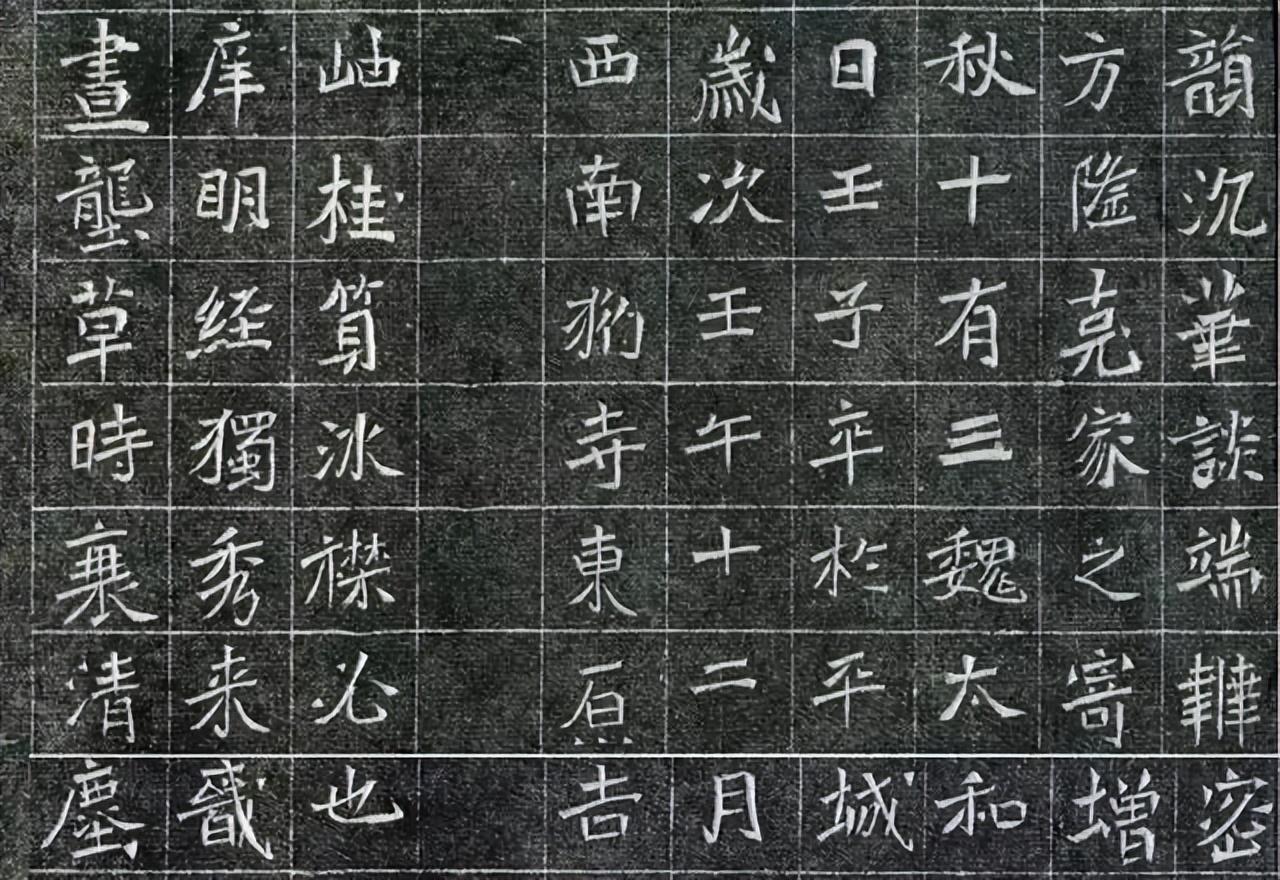 韻沉華談端韡密
方隆克家之寄增
秋十有三魏太和
日壬子卒於平城
歲次壬午十二月
西南寺東原吉
岫桂算冰襟必也
庠明經獨秀来
晝龔草時清塵